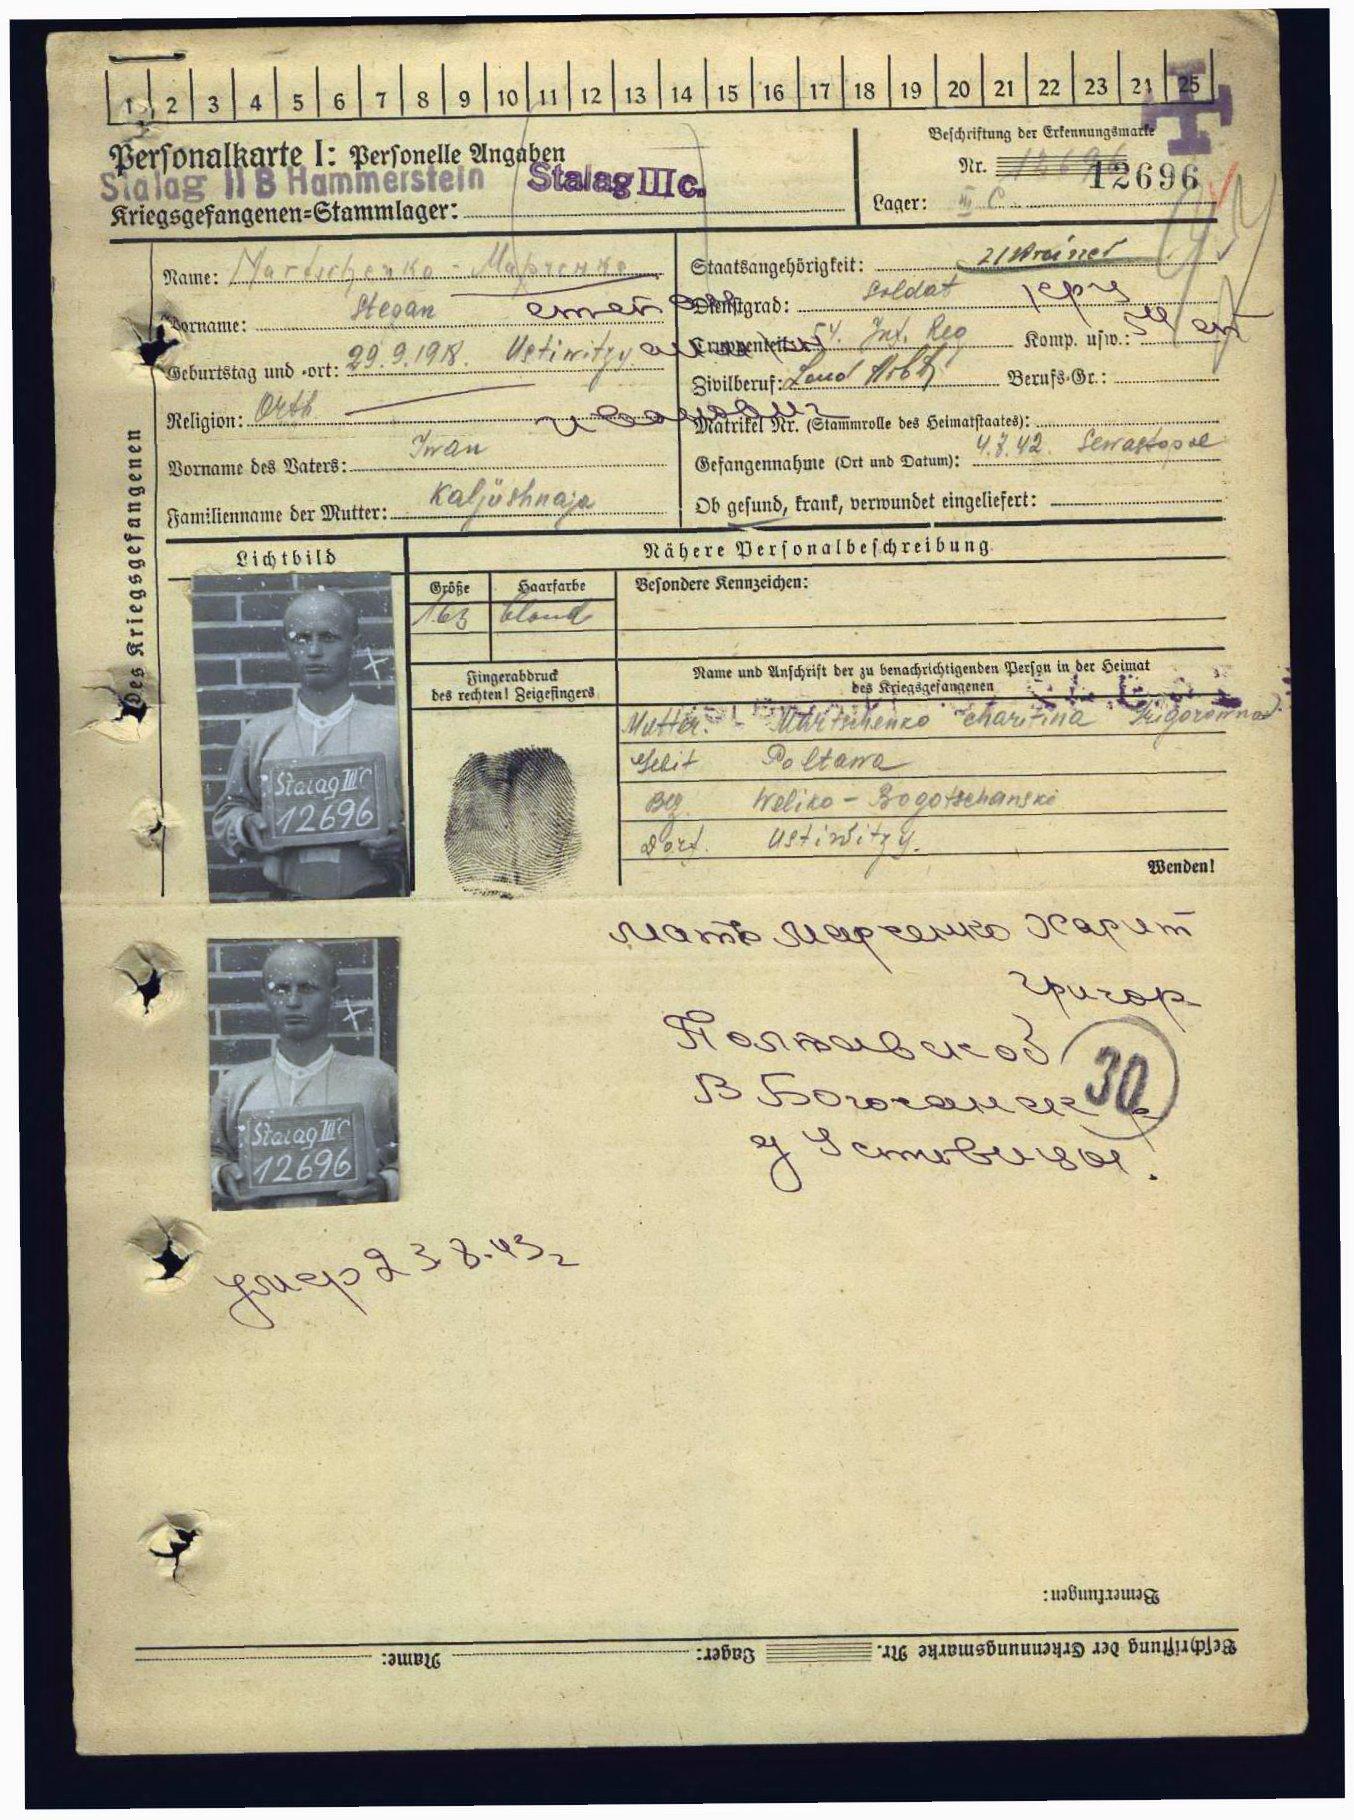 1 2 3 4 5 6 7 8 9 10 11 12 13 14 15 16 17 18 19 20 21 22 23 24 25
Personalkarte I: Personelle Angaben
Beschriftung der Erkennungsmarke
Stalag II B Hammerstein Stalag III c.
Nr. 12696
Kriegsgefangenen-Stammlager:
Lager: III C
des Kriegsgefangenen
Name: Martschenko - Марченко
Vorname: Stepan
степан
Geburtstag und -ort: 29.9.1918. Ustiwitzy
Religion: Orth
Vorname des Vaters: Iwan
Familienname der Mutter: Kaljushnaja
Staatsangehörigkeit: Ukrainer
Dienstgrad: Soldat
Truppenteil: 54. Inf. Reg Komp. usw.:
Zivilberuf: Land Arbt Berufs-Gr.:
Matrikel Nr. (Stammrolle des Heimatstaates):
Gefangennahme (Ort und Datum): 4.7.42. Sewastopol
Ob gesund, krank, verwundet eingeliefert:
Lichtbild
Nähere Personalbeschreibung
Größe Haarfarbe Besondere Kennzeichen:
163 blond
Fingerabdruck
des rechten! Zeigefingers
Name und Anschrift der zu benachrichtigenden Person in der Heimat
des Kriegsgefangenen
Mutter. Martschenko Charitina Grigorowna
Gebit Poltawa
Bez. Weliko - Bogotschanski
Dorf. Ustiwitzy.
Wenden!
Stalag III C
12696
Мать Марченко Харит
Григор
Полтавской
В Богочанск
30
д Устивицы.
Stalag III C
12696
умер 23.8.43г
Bemerkungen:
Beschriftung der Erkennungsmarke Nr. Lager: Name: